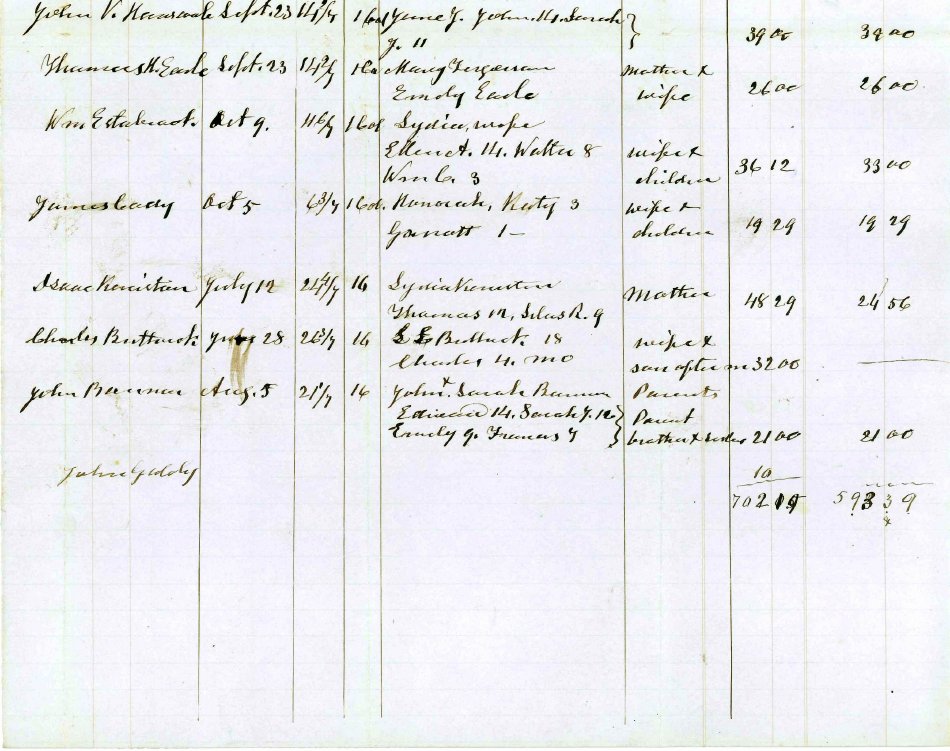 John V. Sept. 23 16 Jane J. John H. Sarah 39 00 39 00
J. 11
Thomas H. Eade Sept. 23 14 2/7 16 Mary Fergerson Mother & 
Emily Eade wife 26 00 26 00
Wm Estabrook Oct 9. 16 Lydia, wife
Ellen A. 14. Walter 8 wife &
Wm C. 3 children 36 12 33 00
James Cady Oct 5 6 3/7 16 Hanorah, Katy 3 wife &
Garratt 1 children 19 29 19 29
Isaac Keniston July 12 24 4/7 16 Lydia Keniston Mother 48 29 24 56
Thomas 12, Silas R. 9
Charles Buttrick 28 26 3/7 16 18 wife &
Charles 4. mo son after 32 00
John Bannan Aug. 5 21 1/7 16 John & Sarah Bannon Parents
Edward 14. Sarah J. 12 Parent
Emily 9. Francis 7 brother & sister 21 00 21 00
John Gaddy 10
702 593 39